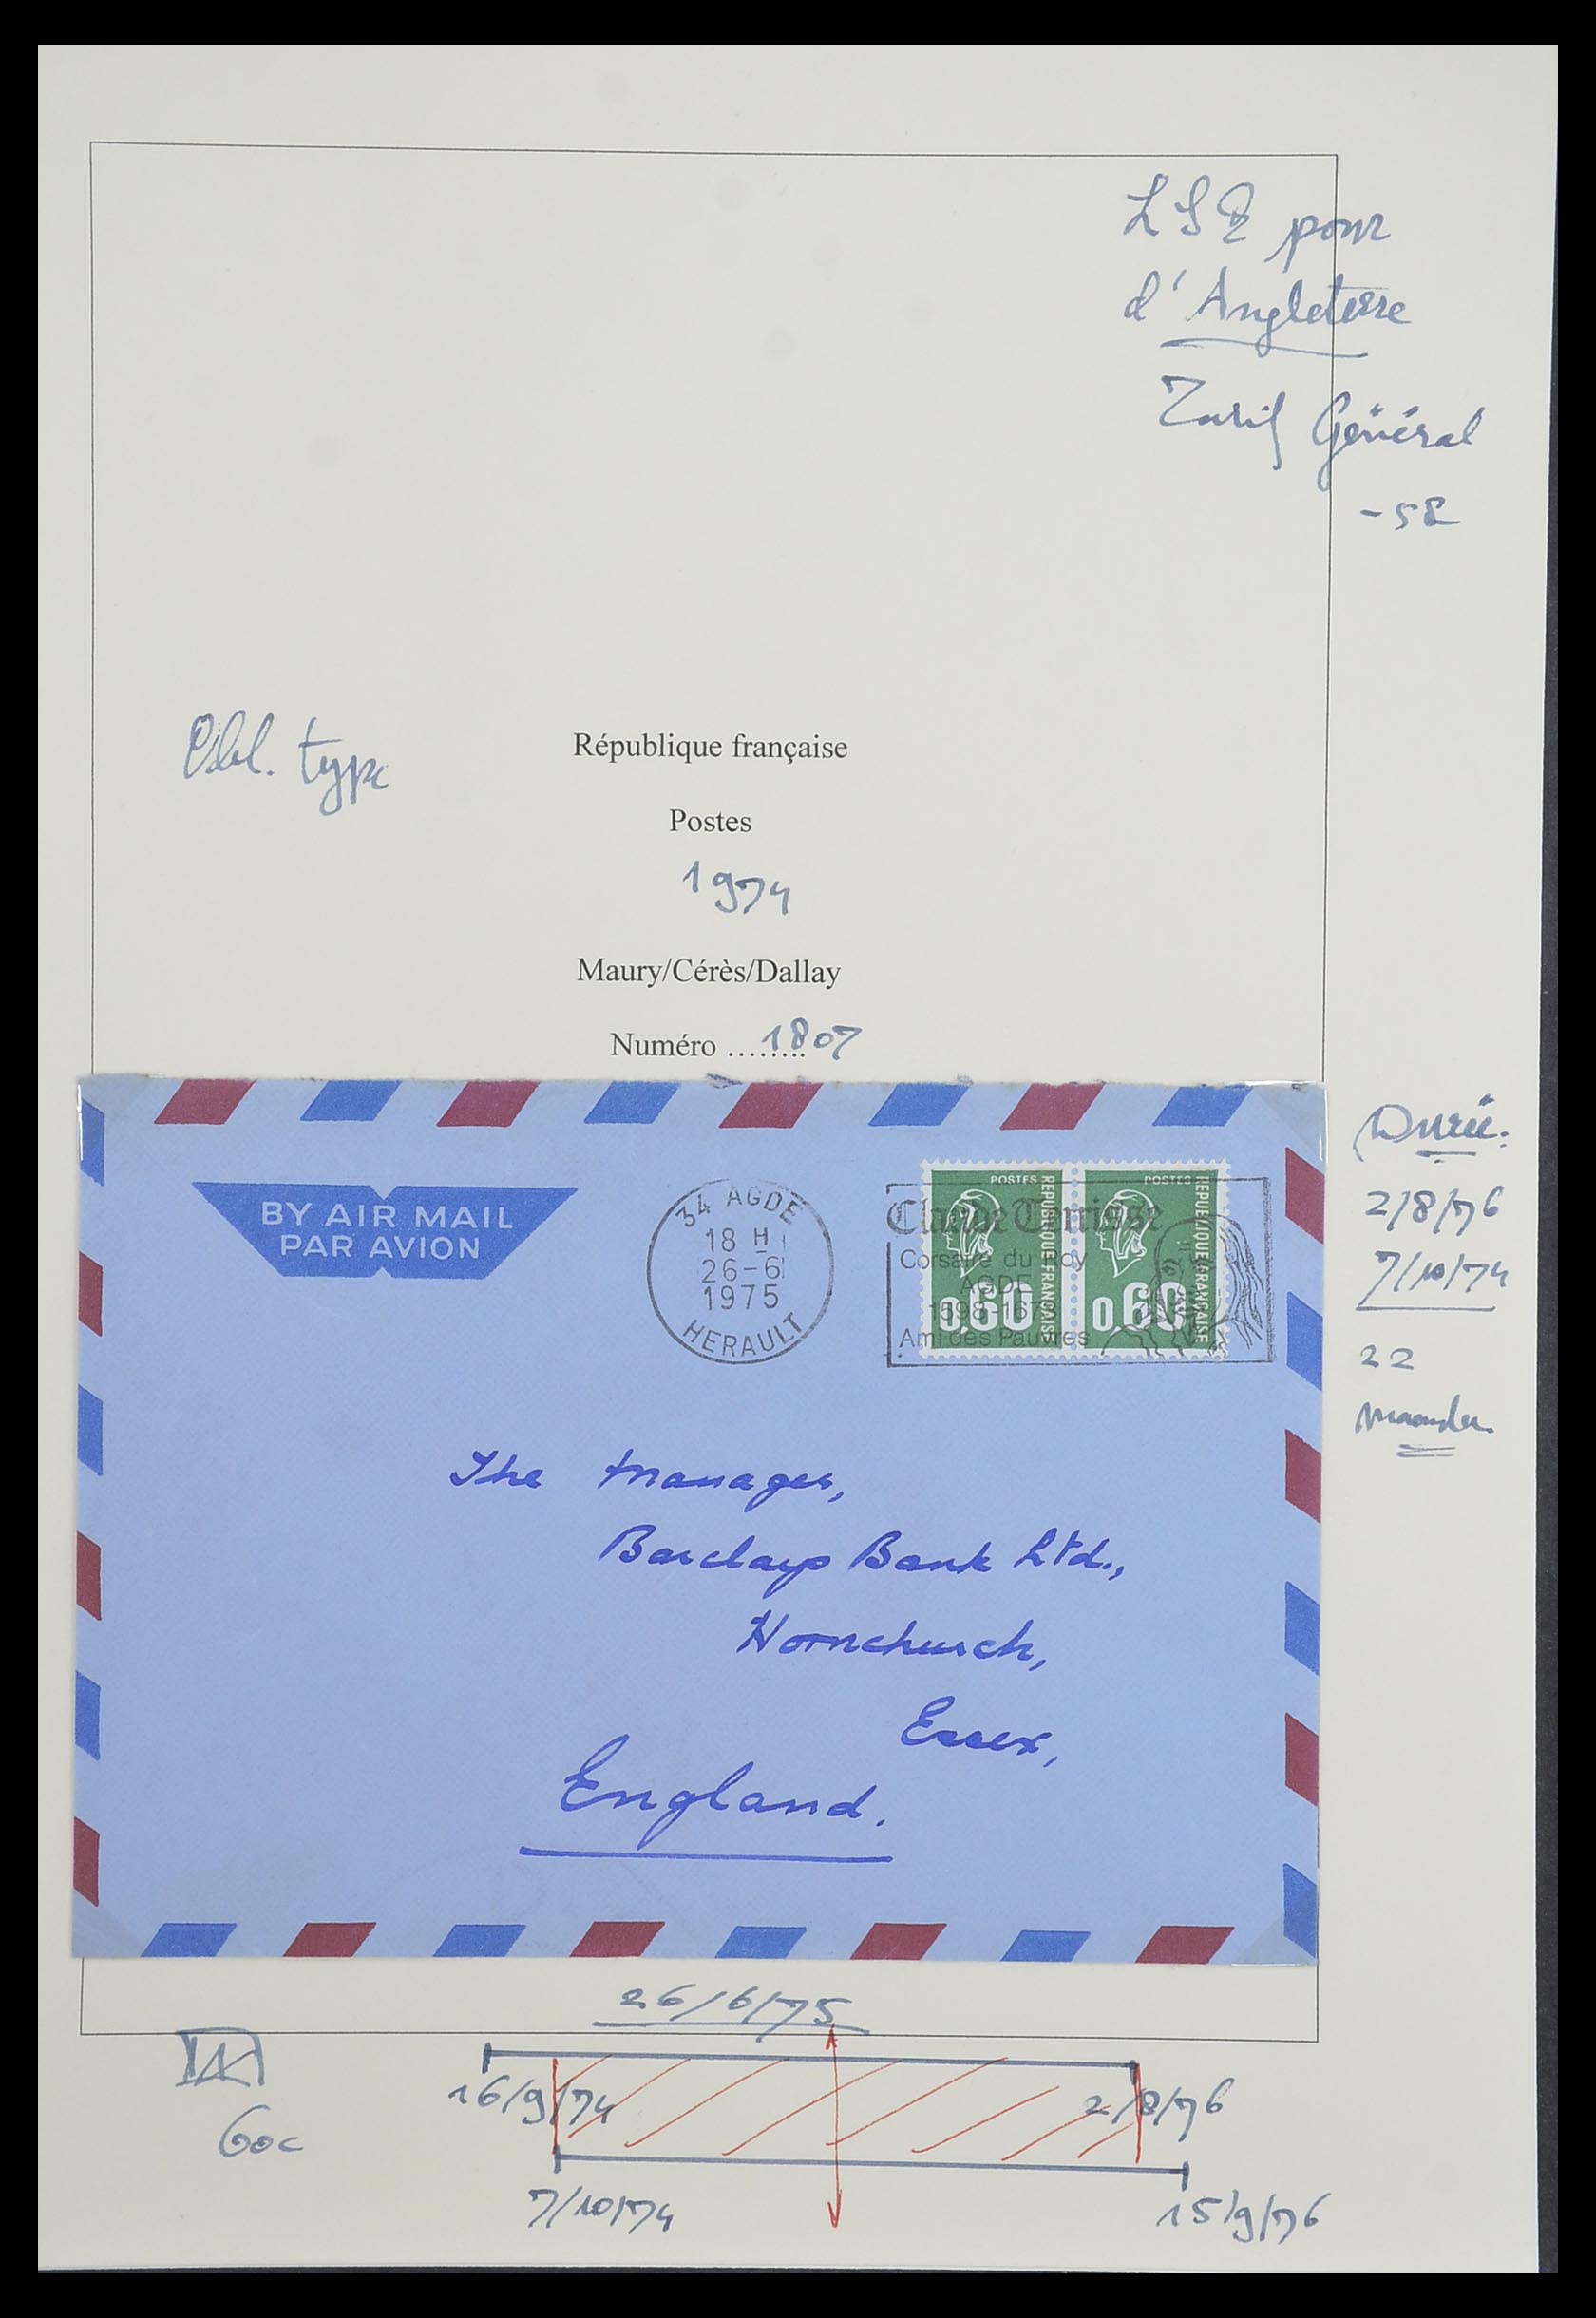 LSE pour
d'Angleterre
Tarif Général
Obl. type
République française
Postes
1974
Maury/Cérès/Dallay
Numéro ........ 1807
BY AIR MAIL
PAR AVION
34 AGDE
18 H
26-6
1975
HERAULT
Claude Terrisse
Corsaire du Roy
AGDE
1598-1673
Ami des Pauvres
POSTES
REPUBLIQUE FRANÇAISE
0,60
POSTES
REPUBLIQUE FRANÇAISE
0,60
The Manager,
Barclays Bank Ltd.,
Hornchurch,
Essex,
England.
Durée:
2/8/76
7/10/74
22
maanden
26/6/75
16/9/74
2/8/76
60c
7/10/74
15/9/76